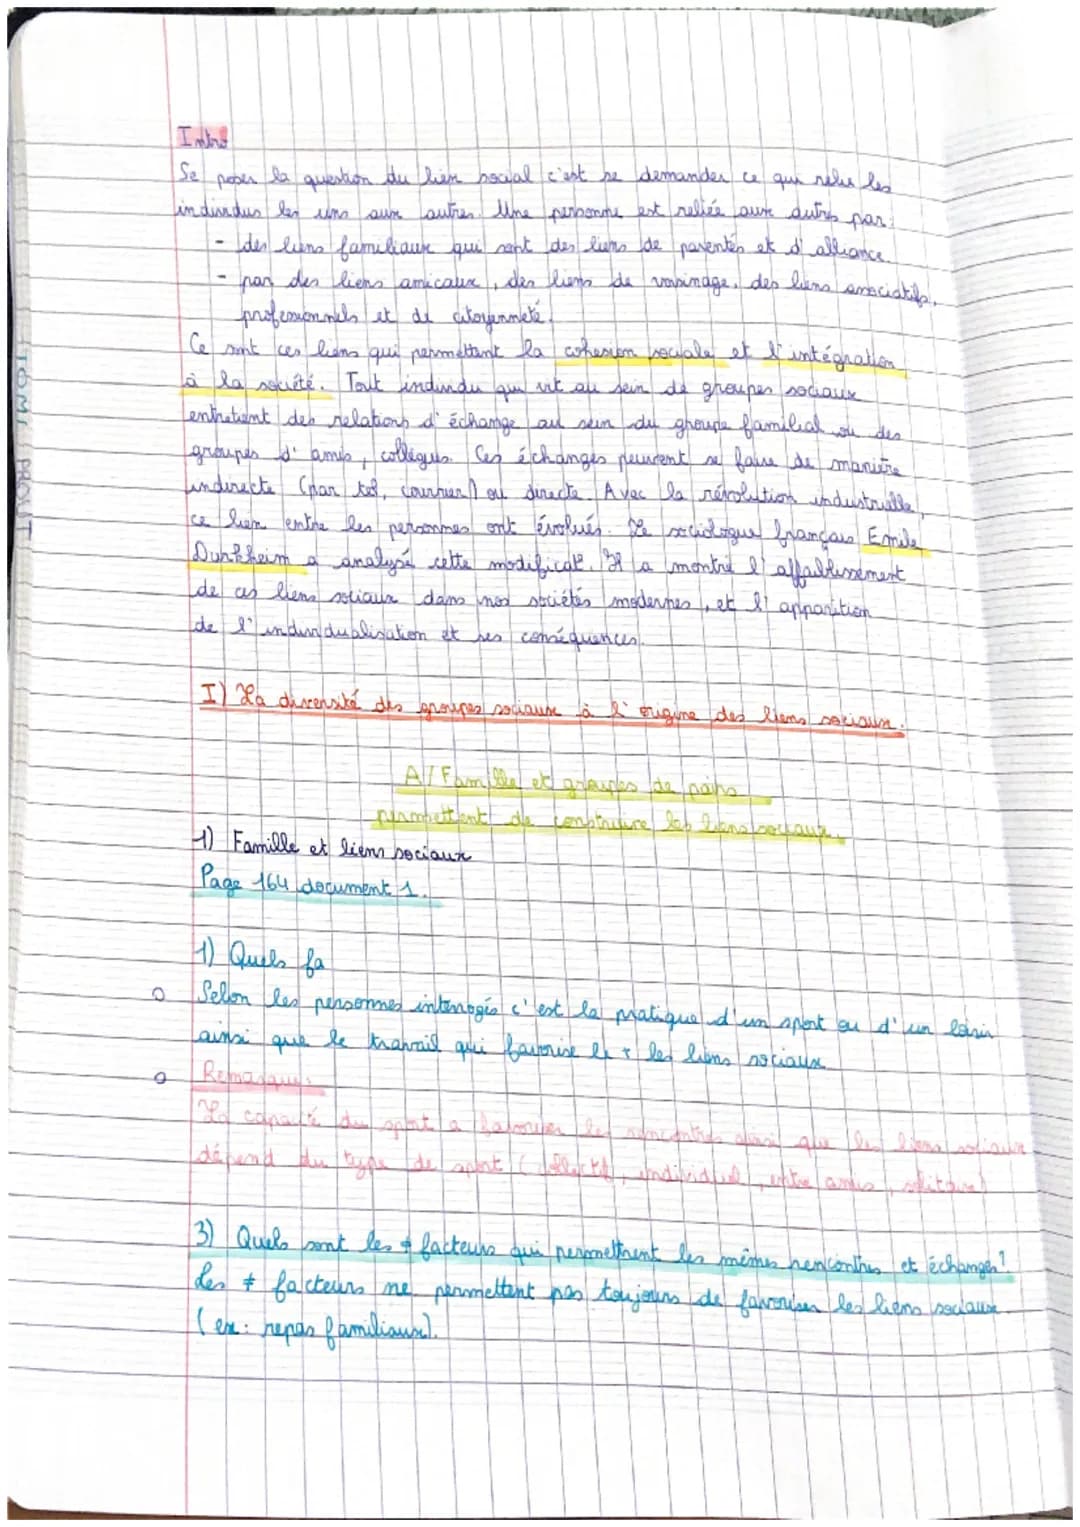 Intro
Se poser la question du lien social c'est se demander ce qui relie les
individus les uns aux autres. Une personne est reliée aux autres par :
- des liens familiaux qui sont des liens de parentés et d'alliance
- par des liens amicaux, des liens de voisinage, des liens associatifs,
professionnels et de citoyenneté.
Ce sont ces liens qui permettent la cohésion sociale et l'intégration
à la société. Tout individu qui vit au sein de groupes sociaux
entretient des relations d'échange au sein du groupe familial ou des
groupes d'amis, collègues. Ces échanges peuvent se faire de manière
indirecte (par tel, courrier) ou directe. Avec la révolution industrielle,
ce lien entre les personnes ont évolués. Le sociologue français Emile
Durkheim a analysé cette modificat°. Il a montré l'affaiblissement
de ces liens sociaux dans nos sociétés modernes, et l'apparition
de l'individualisation et ses conséquences.
I) La diversité des groupes sociaux à l'origine des liens sociaux.
A/ Famille et groupes de pairs
permettent de construire les liens sociaux.
1) Famille et liens sociaux
Page 164 document 1.
1) Quels fa
Selon les personnes interrogés c'est la pratique d'un sport ou d'un loisir
ainsi que le travail qui favorise le + les liens sociaux
Remarque :
La capacité du sport a favoriser les rencontres ainsi que les liens sociaux
dépend du type de sport (collectif, individuel, entre amis, solitaire)
3) Quels sont les ≠ facteurs qui permettent les mêmes rencontres et échanges ?
Les ≠ facteurs ne permettent pas toujours de favoriser les liens sociaux
(ex : repas familiaux).